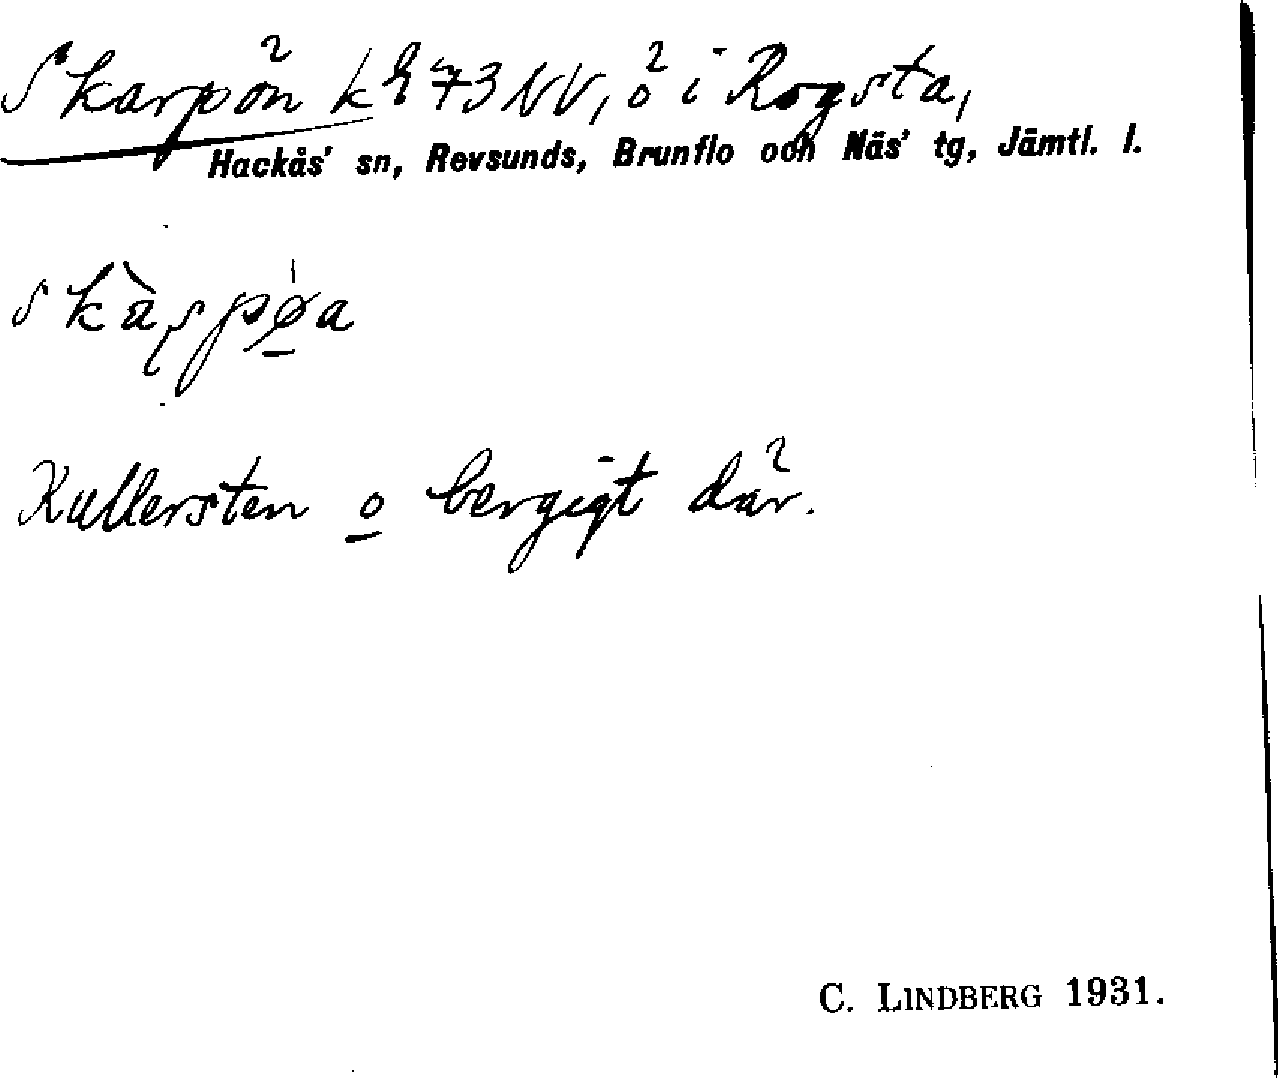 Skarpön k 73 NV, ö i Rogsta,
Hackås' sn, Revsunds, Brunflo och Näs' tg, Jämtl. l.
Kullersten o bergigt där.
C. LINDBERG 1931.